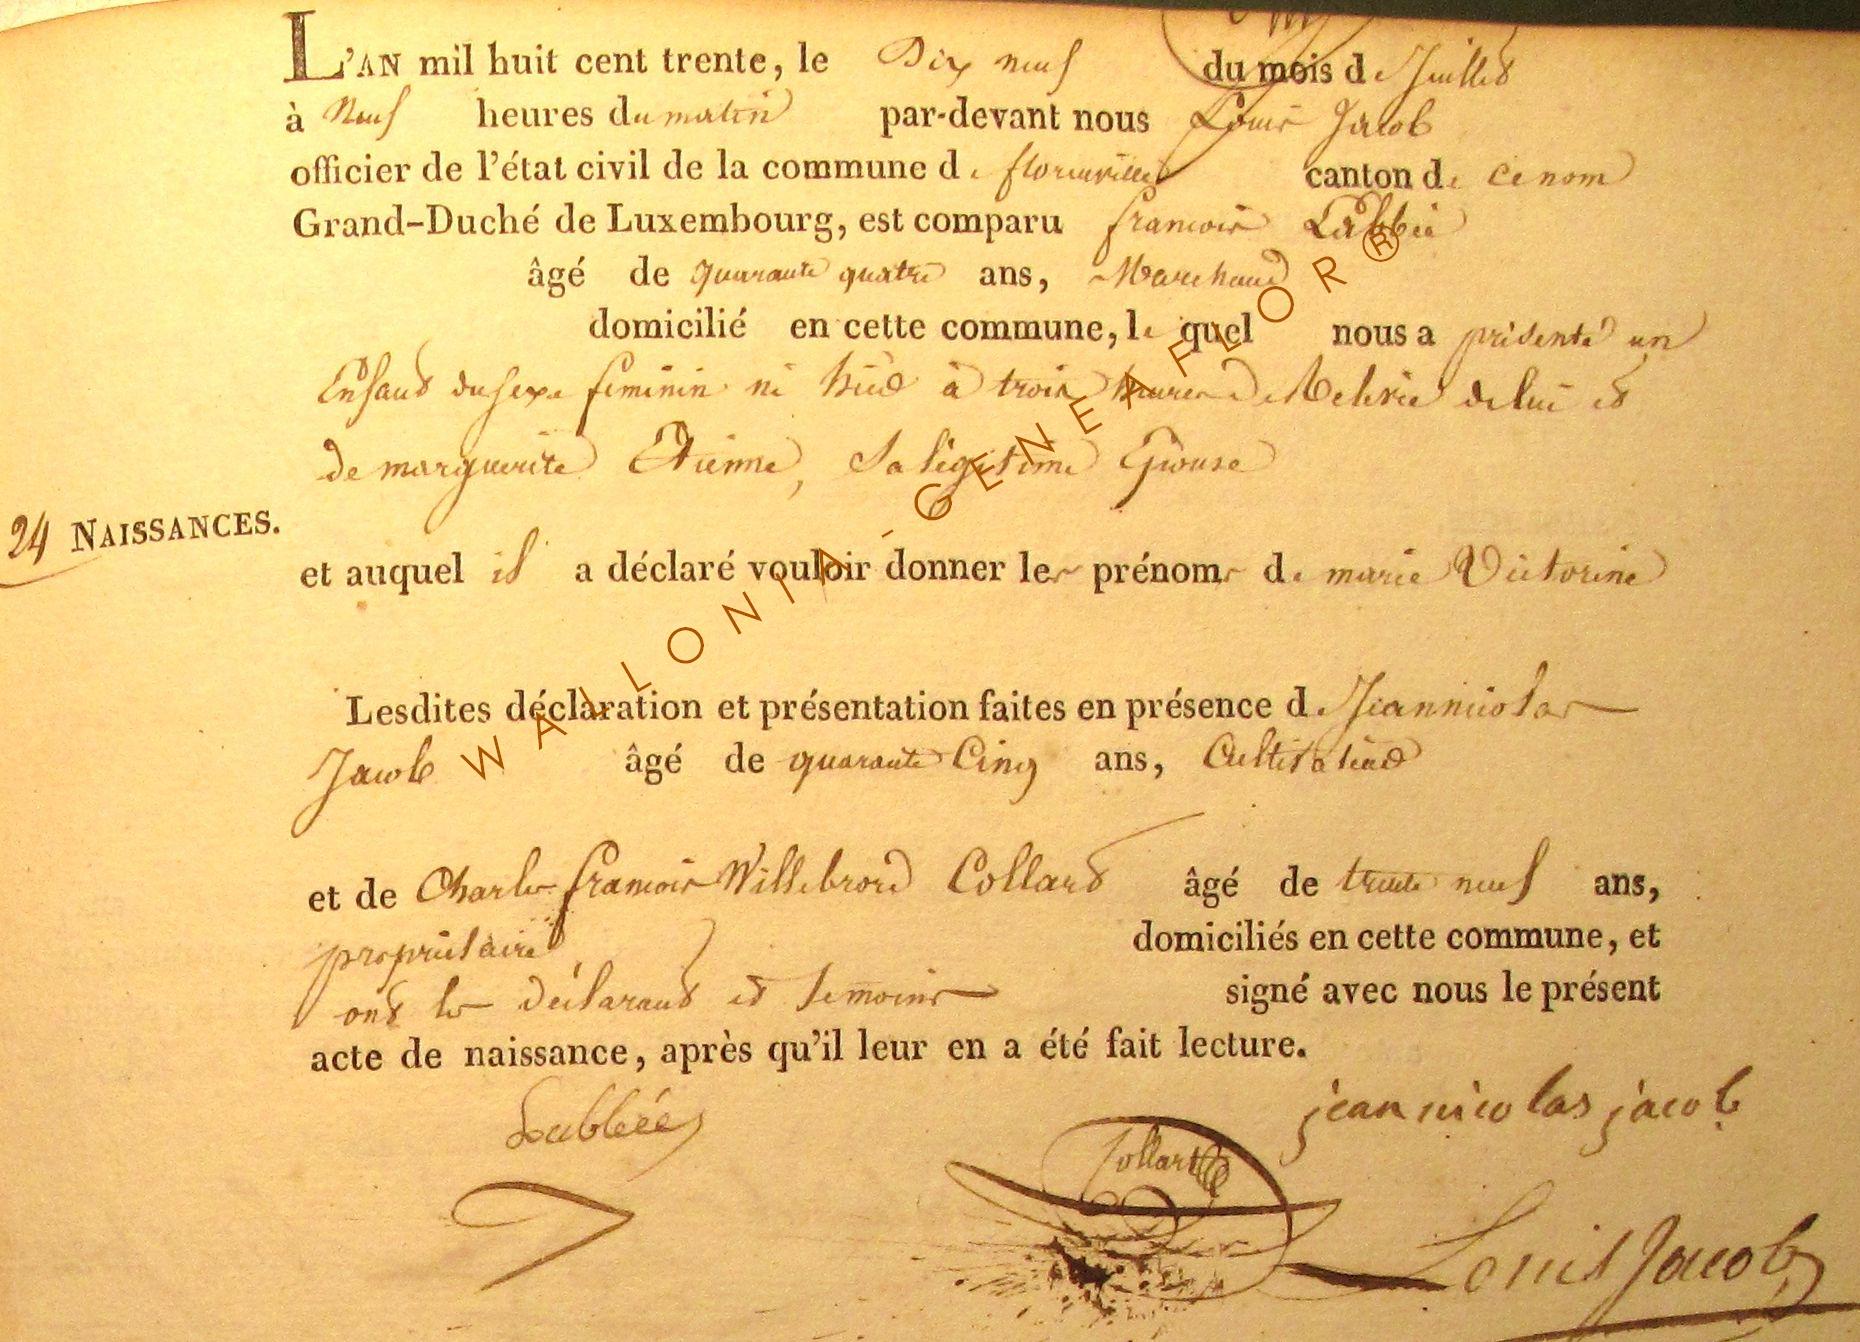 L'AN mil huit cent trente, le Dix neuf du mois de Juillet
à Neuf heures du matin par-devant nous Louis Jacob
officier de l'état civil de la commune de florenville canton de ce nom
Grand-Duché de Luxembourg, est comparu francois Labbée
âgé de quarante quatre ans, Marchand
domicilié en cette commune, le quel nous a présenté un
Enfant du sexe feminin né hier à trois heures de Relevée de lui et
de marguerite Etienne, Sa légitime Epouse
24 NAISSANCES.
et auquel il a déclaré vouloir donner les prénoms de marie Victorine
Lesdites déclaration et présentation faites en présence de Jean nicolas
Jacob âgé de quarante Cinq ans, Cultivateur
et de Charles francois Willebrord Collard âgé de trente neuf ans,
propriétaire, domiciliés en cette commune, et
ont les déclarant et témoins signé avec nous le présent
acte de naissance, après qu'il leur en a été fait lecture.
Labbée
jean nicolas jacob
Collart
Louis Jacob
WALLONIA-GENEAFLOR®